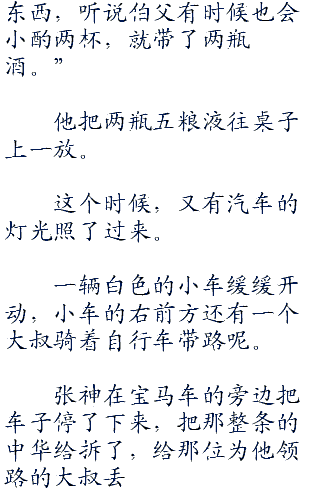 东西，听说伯父有时候也会
小酌两杯，就带了两瓶
酒。”
他把两瓶五粮液往桌子
上一放。
这个时候，又有汽车的
灯光照了过来。
一辆白色的小车缓缓开
动，小车的右前方还有一个
大叔骑着自行车带路呢。
张神在宝马车的旁边把
车子停了下来，把那整条的
中华给拆了，给那位为他领
路的大叔丢